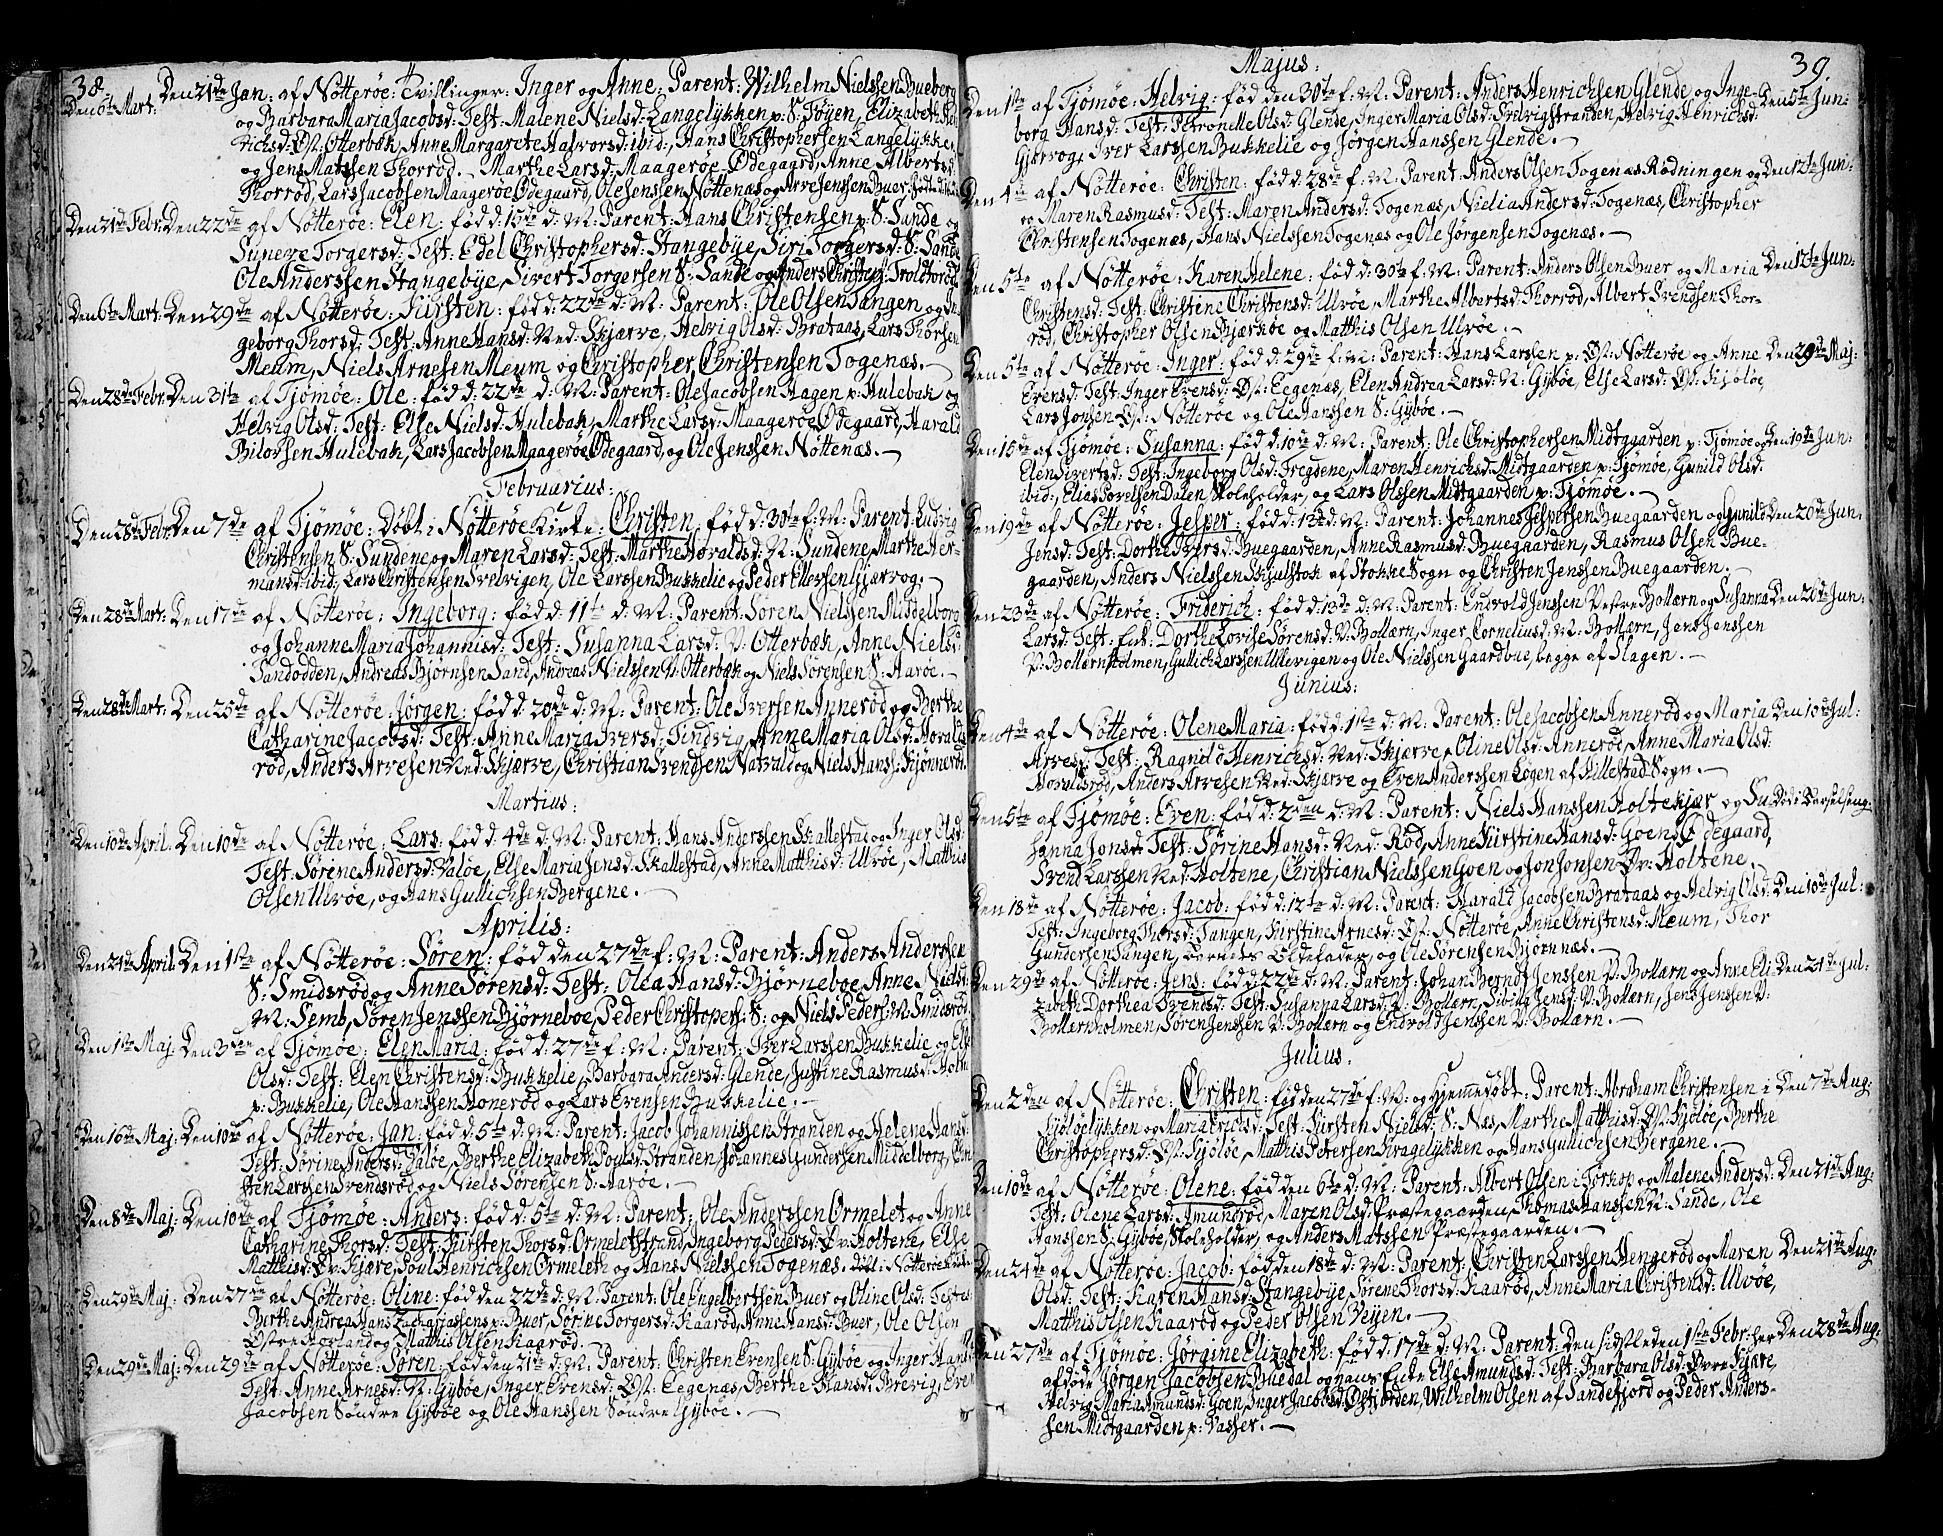 38.
Den 6te Mart: Den 21de Jan: af Nötteröe: Tvillinger: Inger og Anne: Parent: Wilhelm Nielssen Bueberg
og Barbara Maria Jacobsd: Test: Malene Nielsd: Langelykken p: S: Föyen, Elizabeth Hen
richsd: Øst: Otterbæk, Anne Margarete Halvorsd: ibid:, Hans Christophersen Langelykken
og Jens Matssen Thorröd. Marthe Larsd: Maageröe Ødegaard, Anne Albertsd:
Thorröd, Lars Jacobsen Maageröe Ødegaard, Ole Jenssen Nöttenæs og Arve Jenssen Buer. født d:
Den 21de Febr: Den 22de af Nötteröe: Elen: född: 15de d: M: Parent: Hans Christensen p: S: Sande og
Suneve Torgersd: Test: Edel Christophersd: Stangebÿe, Siri Torgersd: S: Sande
Ole Anderssen Stangebÿe, Sivert Torgersen S: Sande og Anders Christens: Troldvorde
Den 6te Mart: Den 29de af Nötteröe: Kirsten: född: 22de d: M: Parent: Ole Olsen Tangen og In
geborg Thorsd: Test: Anne Hansd: Ned: Skjærve, Helvig Olsd: Brataas, Lars Thorsen
Meum, Niels Arnesen Meum og Christopher Christensen Togenæs.
Den 28de Febr: Den 31te af Tjömöe: Ole: född: 22de d: M: Parent: Ole Jacobsen Hagen p: Hulebak og
Helvig Olsd: Test: Else Nielsd: Hulebak, Marthe Larsd: Maageröe Ødegaard, Harald
Bilovsen Hulebak, Lars Jacobsen Maageröe Ødegaard, og Ole Jenssen Nöttenæs.
Februarius:
Den 28de Febr: Den 7de af Tjömöe: Döbt i Nötteröe Kirke: Christen: född: 30te f: M: Parent: Ludvig
Christensen S: Sundene og Maren Larsd: Test: Marthe Haraldsd: N: Sundene, Marthe Her-
mansd: ibid, Lars Christensen Svelvigen, Ole Larssen Bukkelie og Peder Ellevsen Gjærvog.
Den 28de Mart: Den 17de af Nötteröe: Ingeborg: född: 11te d: M: Parent: Sören Nielssen Middelborg
og Johanne Maria Johannisd: Test: Susanna Larsd: V: Otterbæk, Anne Nielsd:
Sandodden, Andreas Bjørnsen Sand, Andreas Nielssen V: Otterbæk og Niels Sörensen S: Aaröe.
Den 28de Mart: Den 25de af Nötteröe: Jörgen: född: 20de d: M: Parent: Ole Iversen Anneröd og Berthe
Catharine Jacobsd: Test: Anne Maria Iversd: Tindvig, Anne Maria Olsd: Haralds
röd, Anders Arvesen Ned: Skjærve, Christian Svendsen Natvald og Niels Hans: Kjönneröd.
Martius:
Den 10de April: Den 10de af Nötteröe: Lars: född: 4de d: M: Parent: Hans Anderssen Skallestad og Inger Olsd:
Test: Sörine Andersd: Valöe, Else Maria Jensd: Skallestad, Anne Matthisd: Ulvöe, Matthis
Olsen Ulvöe, og Hans Gullichsen Bergene.
Aprilis:
Den 24de April: Den 1ste af Nötteröe: Sören: född den 27de f: M: Parent: Anders Anderssen
S: Smidsröd og Anne Sörensd: Test: Olea Hansd: Björneboe, Anne Nielsd:
M: Semb, Sören Jenssen Björneboe, Peder Christophers: S: og Niels Peders: N: Smidsröd.
Den 1ste Maj: Den 3die af Tjömöe: Elen Maria: född: 27de f: M: Parent: Iver Larssen Bukkelie og Else
Olsd: Test: Elen Christensd: Bukkelie, Barbara Andersd: Glende, Justine Rasmusd: Holm
p: Bukkelie, Ole Hanssen Honeröd og Lars Evensen Bukkelie.
Den 16de Maj: Den 10de af Nötteröe: Jan: född: 5te d: M: Parent: Jacob Johannissen Stranden og Helene Hansd:
Test: Sörine Andersd: Valöe, Berthe Elizabeth Poulsd: Stranden, Johannes Gundersen Middelborg, Chri
sten Larssen Svendsröd og Niels Sörensen S: Aaröe.
Den 8de Maj: Den 10de af Tjömöe: Anders: född: 5te d: M: Parent: Ole Anderssen Ormelet og Anne
Catharine Thorsd: Test: Kirsten Thorsd: Ormeletstrand, Ingeborg Pedersd: Øv: Holtene, Else
Matthisd: Øv: Kjære, Poul Henrichsen Ormeleth og Hans Nielssen Togenæs. Döbt i Nötteröe Kirke.
Den 29de Maj: Den 27de af Nötteröe: Oline: född den 22de d: M: Parent: Ole Engelbertsen Buer og Oline Olsd: Testes
Berthe Andrea Hans Zachariassens p: Buer, Sörine Torgersd: Kaaröd, Anne Hansd: Buer, Ole Olsen
Østre Horland og Matthis Olsen Kaaröd.
Den 29de Maj: Den 29de af Nötteröe: Sören: född den 21de d: M: Parent: Christen Evensen S: Gÿböe og Inger Hansd:
Test: Anne Arnesd: N: Gÿböe, Inger Evensd: Øst: Eegenæs, Berthe Hansd: Brevig, Even
Jacobsen Söndre Gÿböe og Ole Hanssen Söndre Gÿböe.
39.
Majus:
Den 1ste af Tjömöe: Helvig: född den 30te f: M: Parent: Anders Henrichsen Glende og Inge- Den 5te Jun:
borg Hansd: Test: Petronelle Olsd: Glende, Inger Maria Olsd: Svelvigstranden, Helvig Henrichsd:
Gjervog, Iver Larssen Bukkelie og Jörgen Hanssen Glende.
Den 4de af Nötteröe: Christen: född: 28de f: M: Parent: Anders Olsen Togenæs Rödningen og Den 12te Jun:
Maren Rasmusd: Test: Maren Andersd: Togenæs, Nielia Andersd: Togenæs, Christopher
Christensen Togenæs, Hans Nielssen Togenæs og Ole Jörgensen Togenæs.
Den 5te af Nötteröe: Karen Helene: född: 30te f: M: Parent: Anders Olsen Buer og Maria Den 12te Jun:
Christensd: Test: Christene Christensd: Ulvöe, Marthe Albertsd: Thorröd, Albert Svendsen Thor-
röd, Christopher Olsen Bjærköe og Matthis Olsen Ulvöe.
Den 5te af Nötteröe: Inger: född: 29de f: M: Parent: Hans Larssen p: Øst: Nötteröe og Anne Den 29de Maj:
Evensd: Test: Inger Evensd: Øst: Eegenæs, Elen Andrea Larsd: N: Gÿböe, Else Larsd: Øst: Kjölöe,
Lars Jonsen Øst: Nötteröe og Ole Hanssen S: Gÿböe.
Den 15de af Tjömöe: Susanna: född: 10de d: M: Parent: Ole Christophersen Midtgaarden p: Tjömöe og Den 19de Jun:
Elen Sivertsd: Test: Ingeborg Olsd: Fregdene, Maren Henrichsd: Midtgaarden p: Tjömöe, Gunild Olsd:
ibid:, Elias Povelsen Dalen Skoleholder, og Lars Olssen Midtgaarden p: Tjömöe.
Den 19de af Nötteröe: Jesper: född: 13de d: M: Parent: Johannes Jespersen Buegaarden og Gunild Den 20de Jun:
Jensd: Test: Dorthe Iversd: Buegaarden, Anne Rasmusd: Buegaarden, Rasmus Olsen Bue-
gaarden, Anders Nielssen Skjulstok af Stokke Sogn og Christen Jenssen Buegaarden.
Den 23de af Nötteröe: Friderich: född: 13de d: M: Parent: Endvold Jenssen Vestre Bollærn og Susanna Den 26de Jun:
Larsd: Test: Enk: Dorthe Lovise Sörensd: V: Bollærn, Inger Corneliusd: M: Bollærn, Jens Jenssen
V: Bollærnholmen, Gullich Larssen Ulvevigen og Ole Nielssen Gaardbue, begge af Slagen.
Junius:
Den 4de af Nötteröe: Olene Maria: född: 1ste d: M: Parent: Ole Jacobsen Anneröd og Maria Den 10de Jul:
Arvesd: Test: Ragnild Henrichsd: Ned: Skjærve, Oline Olsd: Anneröd, Anne Maria Olsd:
Haraldsröd, Anders Arvesen Ned: Skjærve og Even Anderssen Løgen af Hillestad Sogn.
Den 5te af Tjömöe: Even: född: 2den d: M: Parent: Niels Hanssen Holtekjær og Su Döde i Barselseng.
sanna Jonsd: Test: Sörine Hansd: Ned: Röd, Anne Kirstine Hansd: Goens Ødegaard,
Svend Larssen Ned: Holtene, Christian Nielssen Goen og Jon Jonsen Øv: Holtene.
Den 18de af Nötteröe: Jacob: född: 12te d: M: Parent: Harald Jacobsen Brataas og Helvig Olsd: Den 10de Jul:
Test: Ingeborg Thorsd: Tangen, Kirstine Arnesd: Øst: Nötteröe, Anne Christensd: Meum, Thor
Gundersen Tangen, Barnets Oldefader, og Ole Sörensen Björnnæs.
Den 29de af Nötteröe: Jens: född: 22de d: M: Parent: Johan Berndt Jenssen V: Bollærn og Anne Eli- Den 24de Jul:
zabeth Dorthea Svendsd: Test: Susanna Larsd: V: Bollærn, Sibille Jensd: V: Bollærn, Jens Jenssen V:
Bollærnholmen, Sören Jenssen V: Bollærn og Endvold Jenssen V: Bollærn.
Julius.
Den 2den af Nötteröe: Christen: född den 27de f: M: og Hjemmedöbt: Parent: Abraham Christensen i Den 7de Aug:
Kjölöelykken og Maria Erichsd: Test: Kirsten Nielsd: S: Næs, Marthe Matthisd: Øst: Kjölöe, Berthe
Christophersd: Øst: Kjölöe, Matthis Petersen Kragelykken og Hans Gullichsen Bergene.
Den 10de af Nötteröe: Olene: född den 6te d: M: Parent: Albert Olsen i Torkop og Malene Andersd: Den 21de Aug:
Test: Olene Larsd: Amundröd, Maren Olsd: Præstegaarden, Thomas Hanssen N: Sande, Ole
Hanssen S: Gÿböe, Skoleholder, og Anders Matssen Præstegaarden.
Den 24de af Nötteröe: Jacob: född den 18de d: M: Parent: Christen Larssen Hengeröd og Maren Den 21de Aug:
Olsd: Test: Karen Hansd: Stangebÿe, Sörene Thorsd: Kaaröd, Anne Maria Christensd: Ulvöe,
Matthis Olsen Kaaröd og Peder Olsen Vejen.
Den 27de af Tjömöe: Jörgine Elizabeth: född: 17de d: M: Parent: Den sidstleden 1ste Febr: her Den 28de Aug:
afdöde Jörgen Jacobsen Buedal og hans Enke Else Amundsd: Test: Barbara Olsd: Øvre Kjære,
Helvig Maria Amundsd: Goen, Inger Jacobsd: Østjorden, Wilhelm Olsen af Sandefjord og Peder Anders-
sen Midtgaarden p: Vasser.